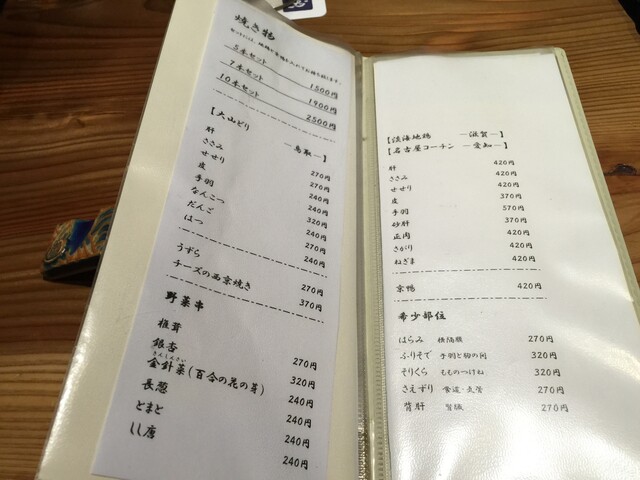 焼き物
5本セット 1500円
7本セット 1900円
10本セット 2500円
【大山どり ―鳥取―】
肝 270円
ささみ 270円
せせり 240円
皮 240円
手羽 320円
なんこつ 240円
だんご 270円
はつ 240円
うずら 270円
チーズの西京焼き 370円
野菜串
椎茸 270円
銀杏 320円
きんしんさい
金針菜(百合の花の芽) 240円
長葱 240円
とまと 240円
しし唐 240円
【淡海地鶏 ―滋賀―】
【名古屋コーチン ―愛知―】
肝 420円
ささみ 420円
せせり 420円
皮 370円
手羽 570円
砂肝 370円
正肉 420円
さがり 420円
ねぎま 420円
京鴨 420円
希少部位
はらみ 横隔膜 270円
ふりそで 手羽と胸の間 320円
そりくら もものつけね 320円
さえずり 食道・気管 270円
背肝 腎臓 270円